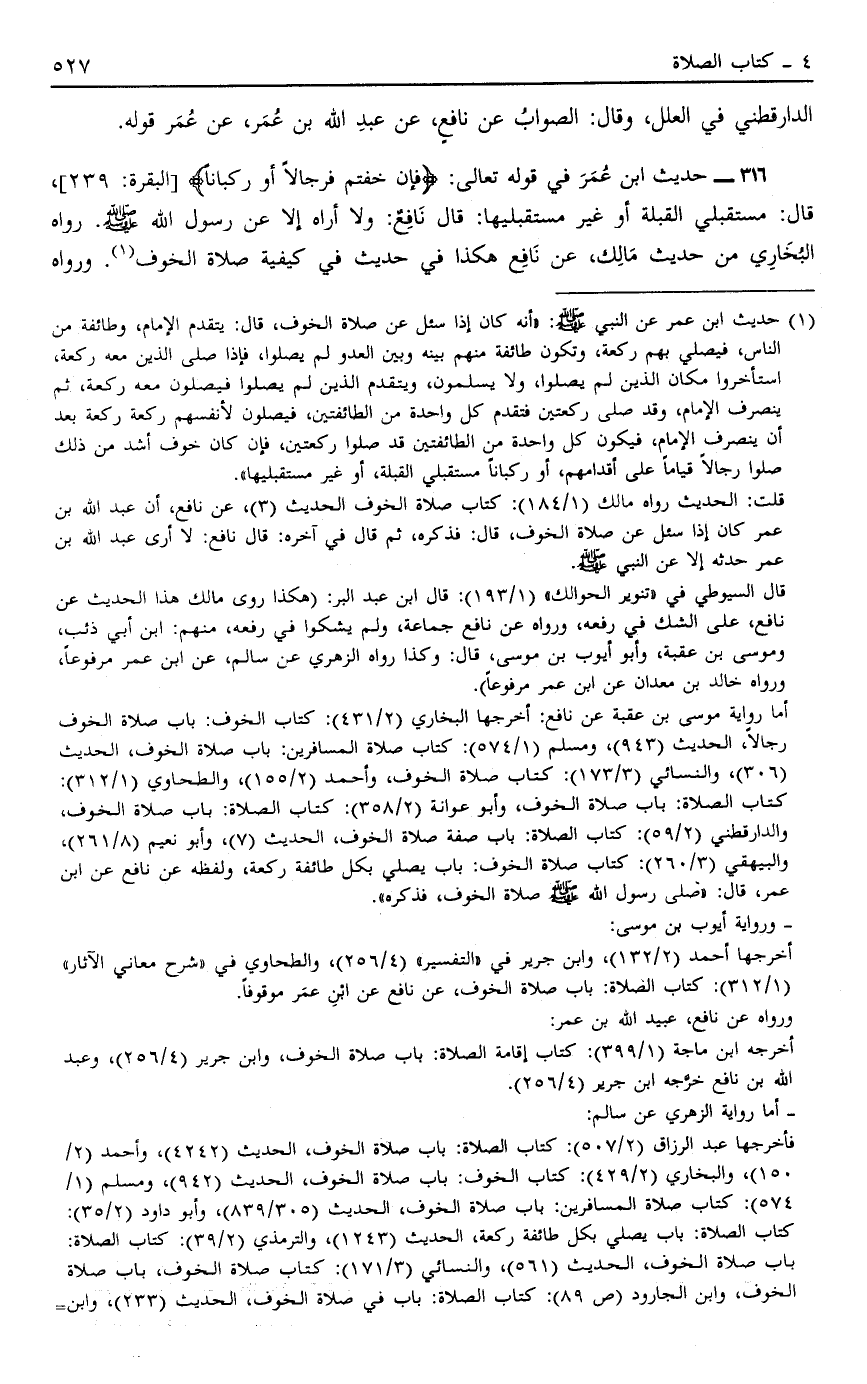 ٤ ـ كتاب الصلاة ٥٢٧
الدارقطني في العلل، وقال: الصوابُ عن نافعٍ، عن عبدِ الله بن عُمَر، عن عُمَر قوله.
٣١٦ ـــ حديث ابن عُمَرَ في قوله تعالى: ﴿فإن خفتم فرجالاً أو ركباناً﴾ [البقرة: ٢٣٩]،
قال: مستقبلي القبلة أو غير مستقبليها: قال نَافِعٌ: ولا أراه إلا عن رسول الله ﷺ. رواه
البُخَارِي من حديث مَالِك، عن نَافِع هكذا في حديث في كيفية صلاة الخوف(١). ورواه
(١) حديث ابن عمر عن النبي ﷺ: «أنه كان إذا سئل عن صلاة الخوف، قال: يتقدم الإمام، وطائفة من
الناس، فيصلي بهم ركعة، وتكون طائفة منهم بينه وبين العدو لم يصلوا، فإذا صلى الذين معه ركعة،
استأخروا مكان الذين لم يصلوا، ولا يسلمون، ويتقدم الذين لم يصلوا فيصلون معه ركعة، ثم
ينصرف الإمام، وقد صلى ركعتين فتقدم كل واحدة من الطائفتين، فيصلون لأنفسهم ركعة ركعة بعد
أن ينصرف الإمام، فيكون كل واحدة من الطائفتين قد صلوا ركعتين، فإن كان خوف أشد من ذلك
صلوا رجالاً قياماً على أقدامهم، أو ركباناً مستقبلي القبلة، أو غير مستقبليها».
قلت: الحديث رواه مالك (١/١٨٤): كتاب صلاة الخوف الحديث (٣)، عن نافع، أن عبد الله بن
عمر كان إذا سئل عن صلاة الخوف، قال: فذكره، ثم قال في آخره: قال نافع: لا أرى عبد الله بن
عمر حدثه إلا عن النبي ﷺ.
قال السيوطي في «تنوير الحوالك» (١/١٩٣): قال ابن عبد البر: (هكذا روى مالك هذا الحديث عن
نافع، على الشك في رفعه، ورواه عن نافع جماعة، ولم يشكوا في رفعه، منهم: ابن أبي ذئب،
وموسى بن عقبة، وأبو أيوب بن موسى، قال: وكذا رواه الزهري عن سالم، عن ابن عمر مرفوعاً،
ورواه خالد بن معدان عن ابن عمر مرفوعاً).
أما رواية موسى بن عقبة عن نافع: أخرجها البخاري (٢/٤٣١): كتاب الخوف: باب صلاة الخوف
رجالاً، الحديث (٩٤٣)، ومسلم (١/٥٧٤): كتاب صلاة المسافرين: باب صلاة الخوف، الحديث
(٣٠٦)، والنسائي (٣/١٧٣): كتاب صلاة الخوف، وأحمد (٢/١٥٥)، والطحاوي (١/٣١٢):
كتاب الصلاة: باب صلاة الخوف، وأبو عوانة (٢/٣٥٨): كتاب الصلاة: باب صلاة الخوف،
والدارقطني (٢/٥٩): كتاب الصلاة: باب صفة صلاة الخوف، الحديث (٧)، وأبو نعيم (٨/٢٦١)،
والبيهقي (٣/٢٦٠): كتاب صلاة الخوف: باب يصلي بكل طائفة ركعة، ولفظه عن نافع عن ابن
عمر، قال: «صلى رسول الله ﷺ صلاة الخوف، فذكره».
ـ ورواية أيوب بن موسى:
أخرجها أحمد (٢/١٣٢)، وابن جرير في «التفسير» (٤/٢٥٦)، والطحاوي في «شرح معاني الآثار»
(١/٣١٢): كتاب الصلاة: باب صلاة الخوف، عن نافع عن ابْنِ عمَر موقوفاً.
ورواه عن نافع، عبيد الله بن عمر:
أخرجه ابن ماجة (١/٣٩٩): كتاب إقامة الصلاة: باب صلاة الخوف، وابن جرير (٤/٢٥٦)، وعبد
الله بن نافع خرَّجه ابن جرير (٤/٢٥٦).
ـ أما رواية الزهري عن سالم:
فأخرجها عبد الرزاق (٢/٥٠٧): كتاب الصلاة: باب صلاة الخوف، الحديث (٤٢٤٢)، وأحمد (٢/
١٥٠)، والبخاري (٢/٤٢٩): كتاب الخوف: باب صلاة الخوف، الحديث (٩٤٢)، ومسلم (١/
٥٧٤): كتاب صلاة المسافرين: باب صلاة الخوف، الحديث (٣٠٥/٨٣٩)، وأبو داود (٢/٣٥):
كتاب الصلاة: باب يصلي بكل طائفة ركعة، الحديث (١٢٤٣)، والترمذي (٢/٣٩): كتاب الصلاة:
باب صلاة الخوف، الحديث (٥٦١)، والنسائي (٣/١٧١): كتاب صلاة الخوف، باب صلاة
الخوف، وابن الجارود (ص ٨٩): كتاب الصلاة: باب في صلاة الخوف، الحديث (٢٣٣)، وابن=